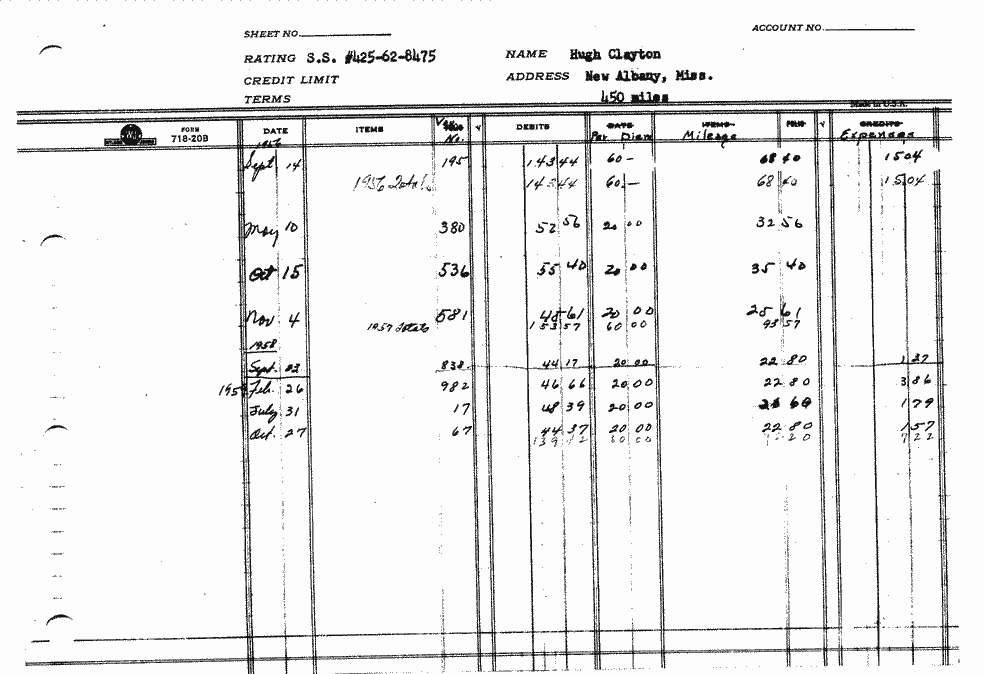 SHEET NO.
ACCOUNT NO.
RATING S.S. #425-62-8475 NAME Hugh Clayton
CREDIT LIMIT ADDRESS New Albany, Miss.
TERMS 450 miles
Made in U.S.A.
FORM 718-20B DATE ITEMS No. √ DEBITS DATE Per Diem ITEMS Mileage FOLIO √ CREDITS Expenses
1956
Sept 14 195 143 44 60 — 68 40 15 04
1956 Totals 143 44 60 — 68 40 15 04
May 10 380 52 56 20 00 32 56
Oct 15 536 55 40 20 00 35 40
Nov. 4 581 45 61 20 00 25 61
1957 totals 153 57 60 00 93 57
1958
Sept. 838 44 17 20 00 22 80 1 37
1959 Feb. 26 982 46 66 20 00 22 80 3 86
July 31 17 48 39 20 00 1 79
Oct. 27 67 44 37 20 00 22 80 1 57
60 00 7 22